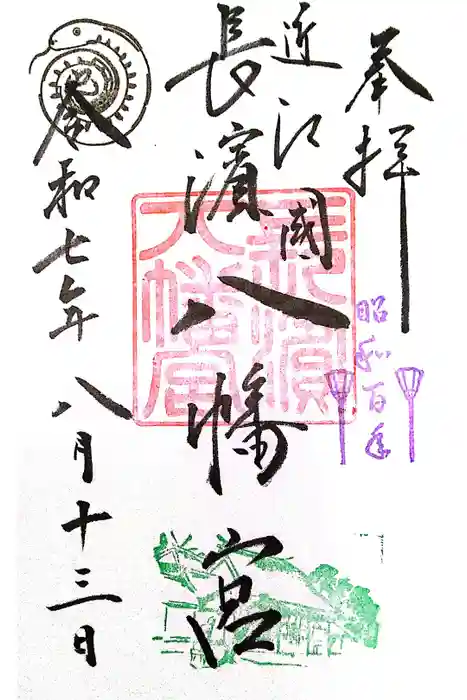 奉拝
近江國
長濱八幡宮
令和七年八月十三日
昭和百年
長濱
八幡宮